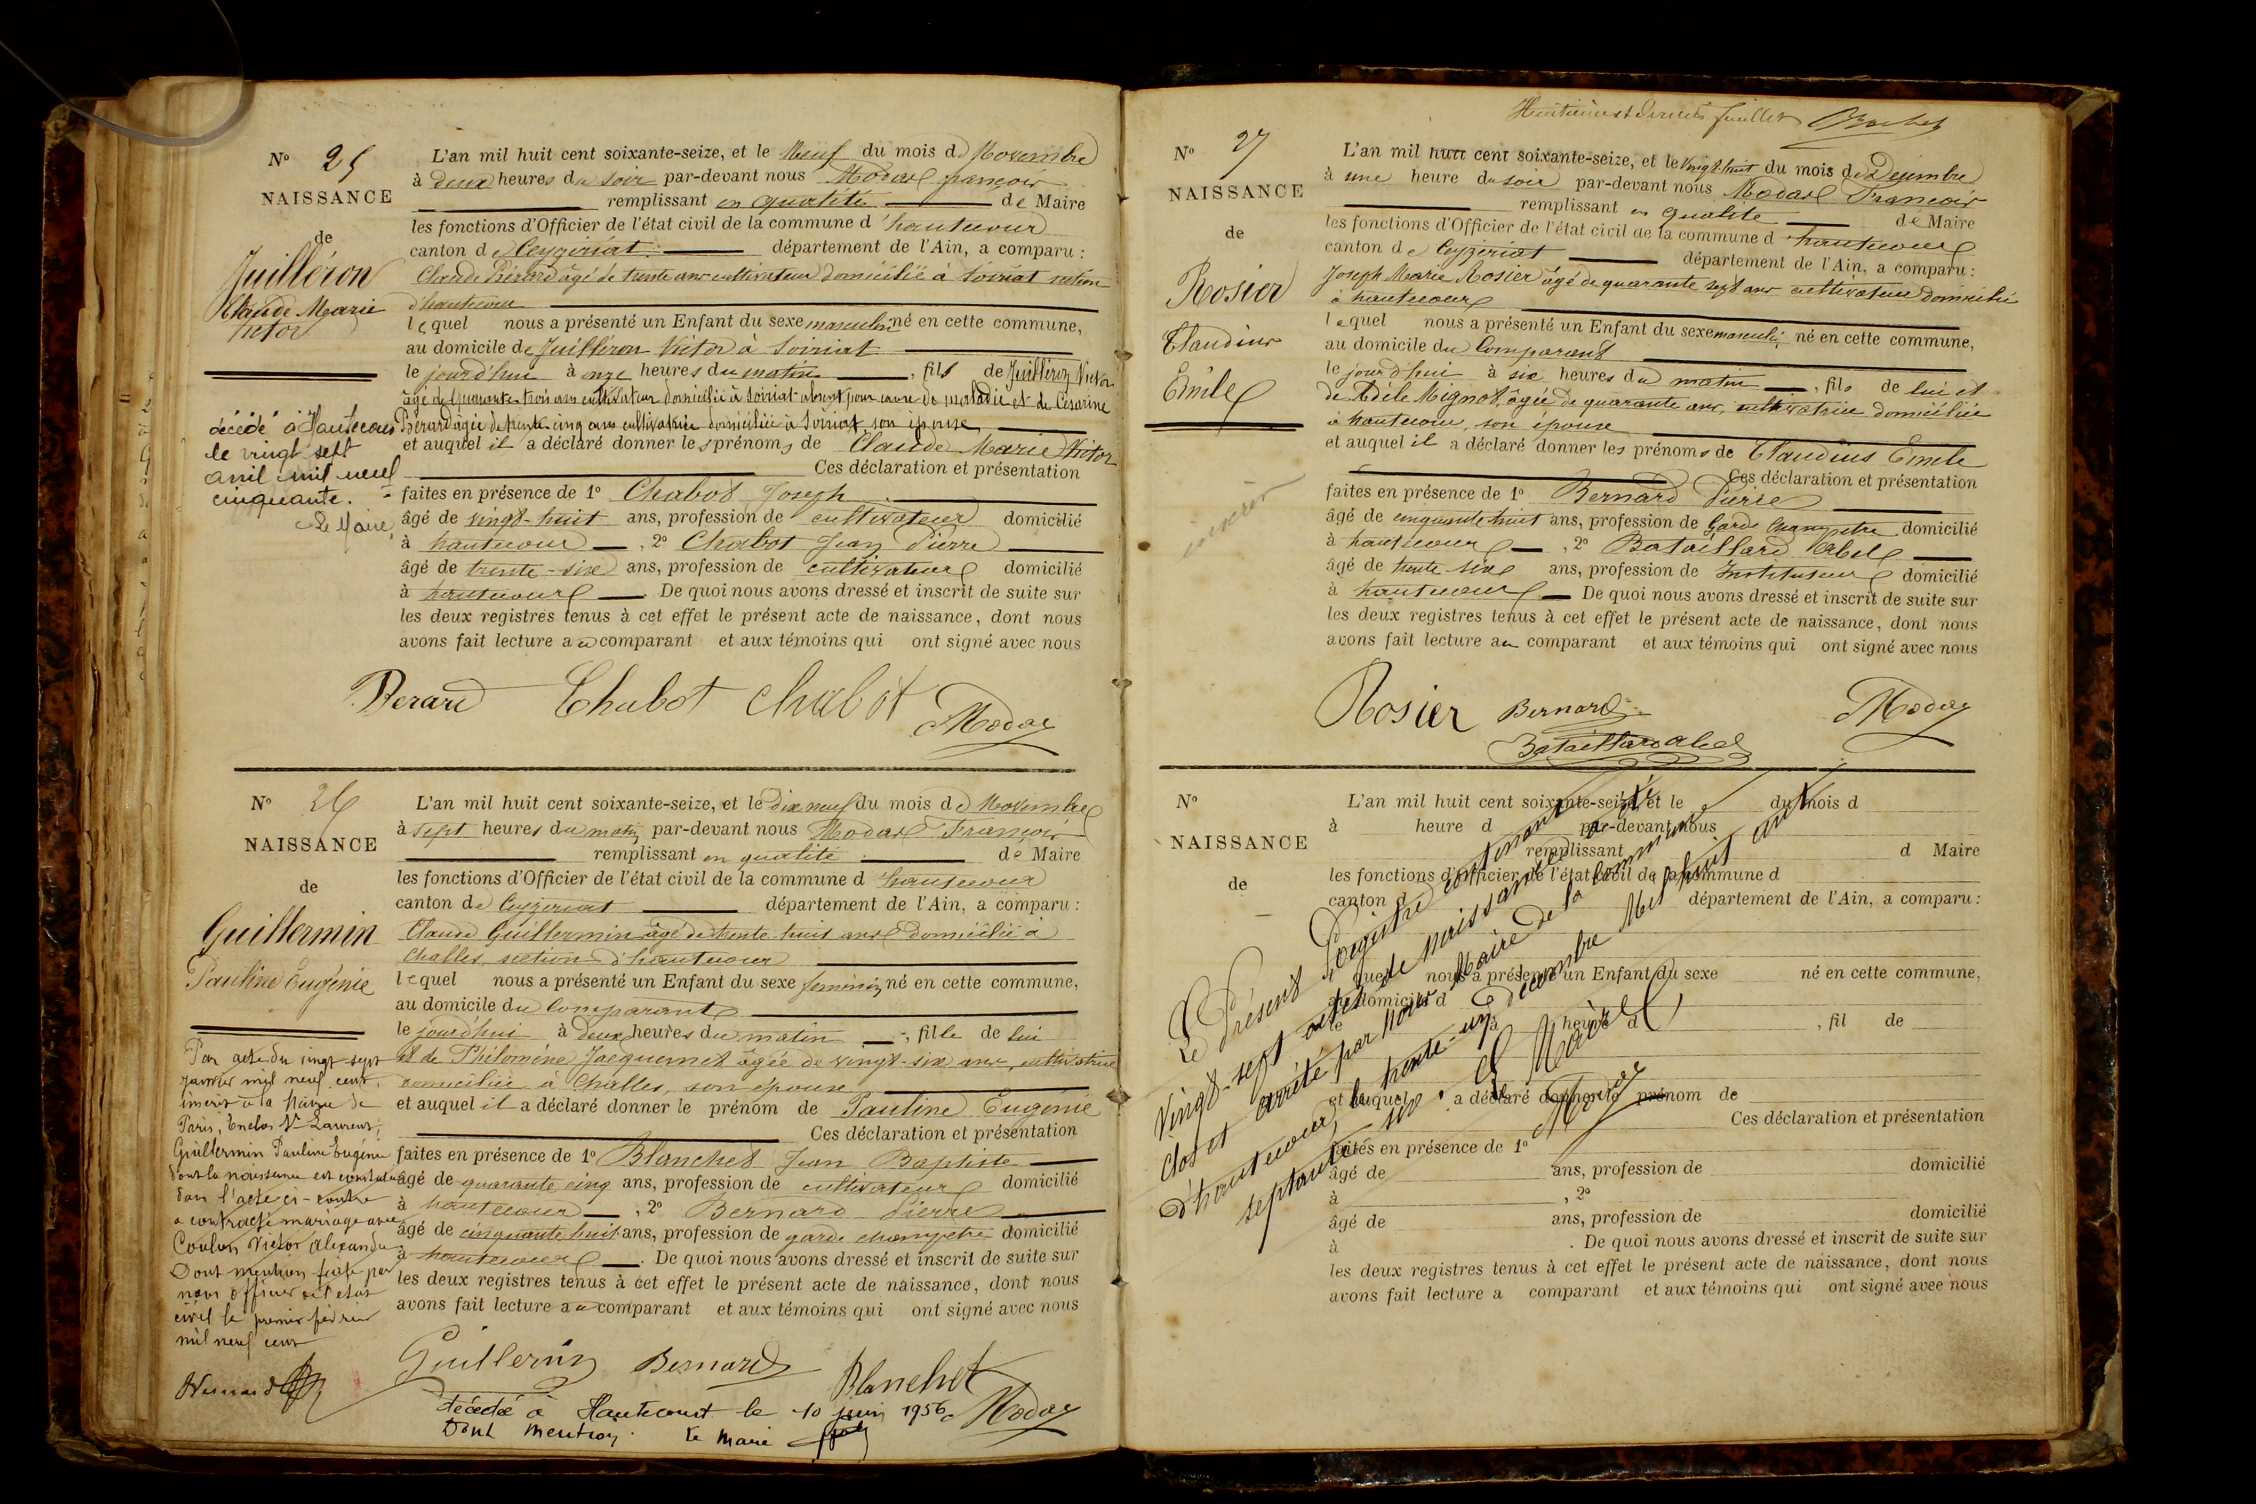 Nº 25
NAISSANCE
de
Juilléron
Claude Marie
Victor
décédé à Hautecour
le vingt sept
avril mil neuf
cinquante.
Le Maire,
L'an mil huit cent soixante-seize, et le Neuf du mois de Novembre
à deux heures du soir par-devant nous Modas françois
remplissant en qualité de Maire
les fonctions d'Officier de l'état civil de la commune d'hautecour
canton de Ceyzériat département de l'Ain, a comparu :
Claude Bérard âgé de trente ans cultivateur domicilié à Soiriat section
d'hautecour
lequel nous a présenté un Enfant du sexe masculin né en cette commune,
au domicile de Juilléron Victor à Soiriat
le jourd'hui à onze heures du matin, fils de Juilléron Victor
âgé de quarante trois ans cultivateur domicilié à Soiriat absent pour cause de maladie et de Césarine
Bérard âgée de trente-cinq ans cultivatrice domiciliée à Soiriat son épouse
et auquel il a déclaré donner les prénoms de Claude Marie Victor
Ces déclaration et présentation
faites en présence de 1º Chabot Joseph
âgé de vingt-huit ans, profession de cultivateur domicilié
à hautecour, 2º Chabot Jean Pierre
âgé de trente-six ans, profession de cultivateur domicilié
à hautecour. De quoi nous avons dressé et inscrit de suite sur
les deux registres tenus à cet effet le présent acte de naissance, dont nous
avons fait lecture au comparant et aux témoins qui ont signé avec nous
Berard Chabot Chabot
Nº 26
NAISSANCE
de
Guillermin
Pauline Eugénie
Par acte du vingt-sept
janvier mil neuf cent,
inscrit à la Mairie de
Paris, Enclos St Laurent,
Guillermin Pauline Eugénie
dont la naissance est constatée
dans l'acte ci-contre
a contracté mariage avec
Coulon Victor Alexandre
Dont mention faite par
nous officier de l'état
civil le premier février
mil neuf cent
L'an mil huit cent soixante-seize, et le dix neuf du mois de Novembre
à sept heures du matin par-devant nous Modas François
remplissant en qualité de Maire
les fonctions d'Officier de l'état civil de la commune d'hautecour
canton de Ceyzériat département de l'Ain, a comparu :
Claude Guillermin âgé de trente huit ans domicilié à
Challes section d'hautecour
lequel nous a présenté un Enfant du sexe féminin né en cette commune,
au domicile du Comparant
le jourd'hui à deux heures du matin, fille de lui
et de Philomène Jacquemet âgée de vingt-six ans, cultivatrice
domiciliée à Challes, son épouse
et auquel il a déclaré donner le prénom de Pauline Eugénie
Ces déclaration et présentation
faites en présence de 1º Blanchet Jean Baptiste
âgé de quarante cinq ans, profession de cultivateur domicilié
à hautecour, 2º Bernard Pierre
âgé de cinquante huit ans, profession de garde champêtre domicilié
à hautecour. De quoi nous avons dressé et inscrit de suite sur
les deux registres tenus à cet effet le présent acte de naissance, dont nous
avons fait lecture au comparant et aux témoins qui ont signé avec nous
Guillermin Bernard Blanchet
décédée à Hautecourt le 10 juin 1956
Dont mention. Le Maire
Huitième et dernier feuillet
Nº 27
NAISSANCE
de
Rosier
Claudius
Emile
L'an mil huit cent soixante-seize, et le vingt-huit du mois de Décembre
à une heure du soir par-devant nous Modas François
remplissant en qualité de Maire
les fonctions d'Officier de l'état civil de la commune d'hautecour
canton de Ceyzériat département de l'Ain, a comparu :
Joseph Marie Rosier âgé de quarante sept ans cultivateur domicilié
à hautecour
lequel nous a présenté un Enfant du sexe masculin né en cette commune,
au domicile du Comparant
le jourd'hui à six heures du matin, fils de lui et
de Adèle Mignot, âgée de quarante ans, cultivatrice domiciliée
à hautecour, son épouse
et auquel il a déclaré donner les prénoms de Claudius Emile
Ces déclaration et présentation
faites en présence de 1º Bernard Pierre
âgé de cinquante huit ans, profession de Garde Champêtre domicilié
à hautecour, 2º Bataillard Abel
âgé de trente-six ans, profession de Instituteur domicilié
à hautecour. De quoi nous avons dressé et inscrit de suite sur
les deux registres tenus à cet effet le présent acte de naissance, dont nous
avons fait lecture au comparant et aux témoins qui ont signé avec nous
Rosier Bernard
Bataillard Abel
Nº
NAISSANCE
de
L'an mil huit cent soixante-seize, et le du mois d
à heure d par-devant nous
remplissant d Maire
les fonctions d'Officier de l'état civil de la commune d
canton d département de l'Ain, a comparu :
lequel nous a présenté un Enfant du sexe né en cette commune,
au domicile d
le à heure d, fil de
et auquel a déclaré donner le prénom de
Ces déclaration et présentation
faites en présence de 1º
âgé de ans, profession de domicilié
à, 2º
âgé de ans, profession de domicilié
à. De quoi nous avons dressé et inscrit de suite sur
les deux registres tenus à cet effet le présent acte de naissance, dont nous
avons fait lecture a comparant et aux témoins qui ont signé avec nous
Le Présent Registre contenant
vingt-sept actes de naissances a été
clos et arrêté par Nous Maire de la Commune
d'hautecour, le trente-un décembre Mil huit cent
septante six. Le Maire